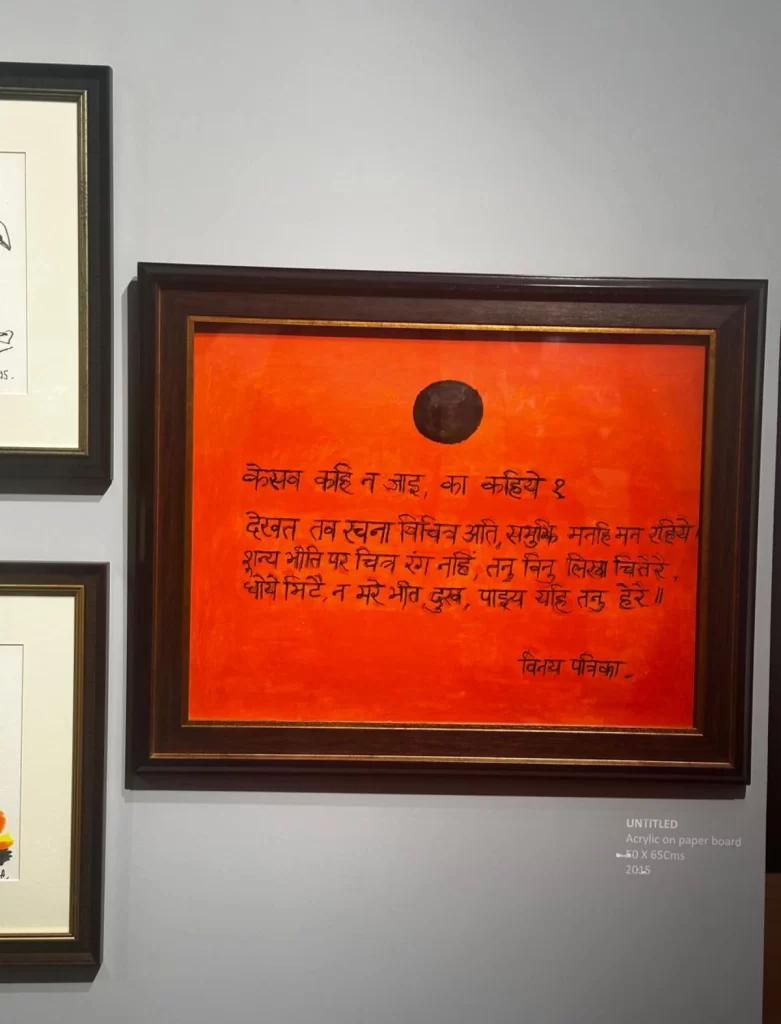 केसव कहि न जाइ, का कहिये ?
देखत तव रचना विचित्र अति, समुझि मनहि मन रहिये ।
शून्य भीति पर चित्र रंग नहिं, तनु बिनु लिखा चितेरे,
धोये मिटै, न मरे भीत दुख, पाइय यहि तनु हेरे ॥
विनय पत्रिका
UNTITLED
Acrylic on paper board
50 X 65Cms
2015